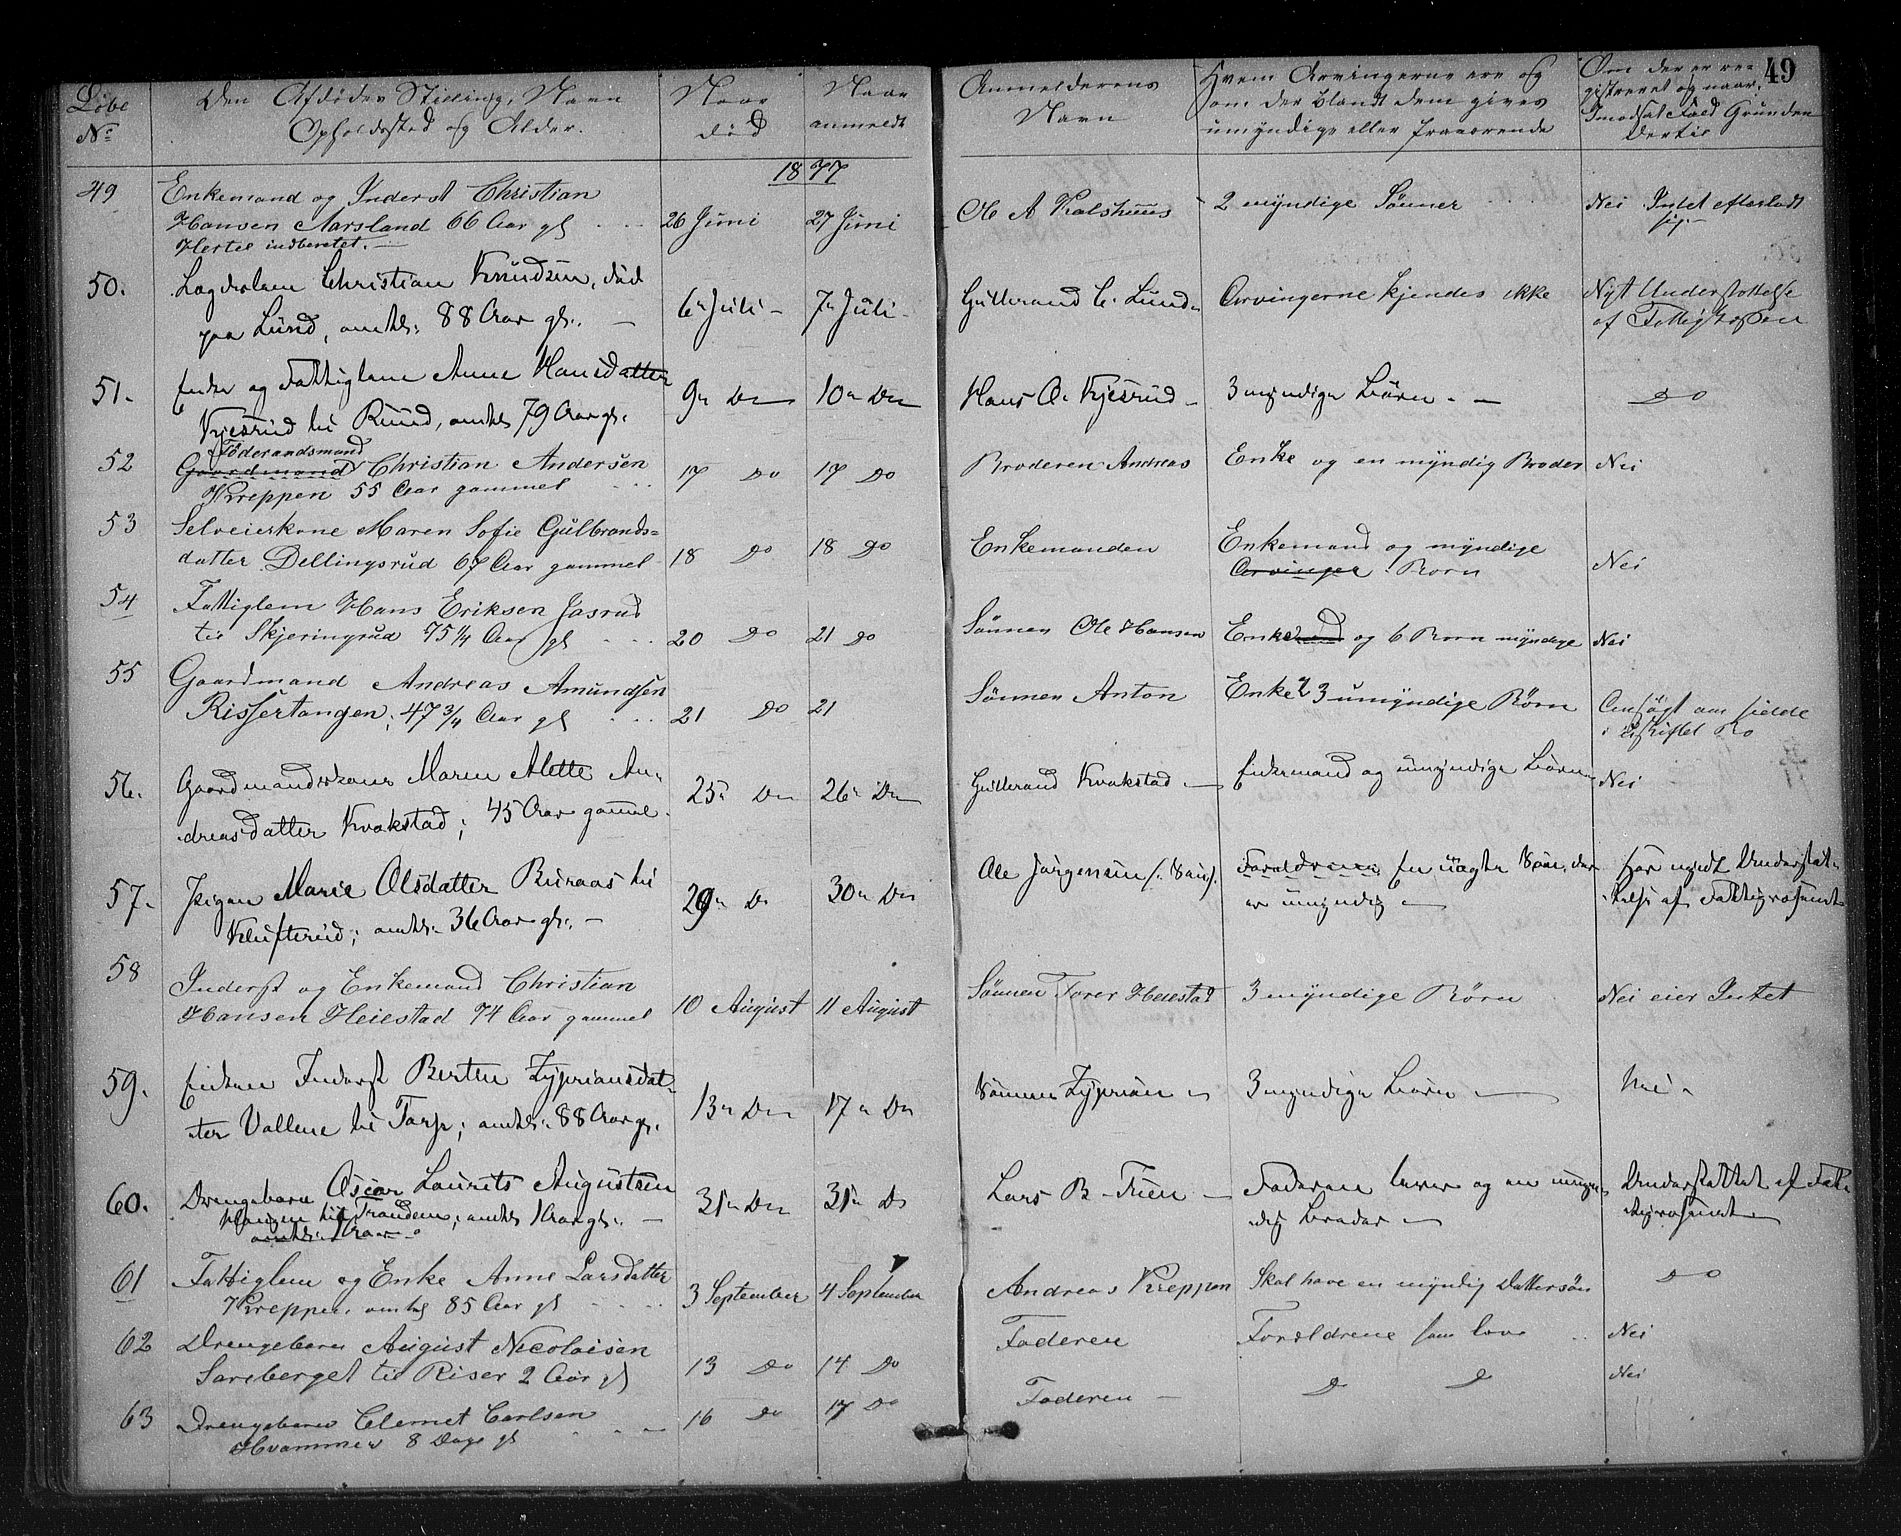 49
Løbe
No
Den Afdødes Stilling, Navn
Opholdssted og Alder.
Naar
død
Naar
anmeldt
Anmelderens
Navn
Hvem Arvingerne ere og
om der blandt dem gives
umyndige eller fraværende
Om der er re-
gistreret og naar.
Imodsat Fald Grunden
dertil
1877
49
Enkemand og Inderst Christian
Hansen Aarsland 66 Aar gl
Hertil indberetet.
26 Juni
27 Juni
Ole A Kalshuus
2 myndige Sønner
Nei Intet efterladt
sig
50.
Lægdslem Christian Knudsen, død
paa Lund, omtr. 88 Aar gl.
6 Juli
7 Juli
Gulbrand C. Lund
Arvingerne kjendes ikke
Nydt Understøttelse
af Fattigkassen
51.
Enke og Fattiglem Anne Hansdatter
Kjesrud til Ruud, omtr 79 Aar gl.
9 Do
10 Do
Hans O. Kjesrud
3 myndige Børn
Do
52
Føderaadsmand
Gaardmand Christian Andersen
Kreppen 55 Aar gammel
17 Do
17 Do
Broderen Andreas
Enke og en myndig Broder
Nei
53
Selveierkone Maren Sofie Gulbrands=
datter Dellingsrud 67 Aar gammel
18 Do
18 Do
Enkemanden
Enkemand og myndige
Arvinger Børn
Nei
54
Fattiglem Hans Eriksen Jasrud
til Skjeringrud 75 1/4 Aar gl
20 Do
21 Do
Sønnen Ole Hansen
Enkemand og 6 Børn myndige
Nei
55
Gaardmand Andreas Amundsen
Rissertangen, 47 3/4 Aar gl
21 Do
21
Sønnen Anton
Enke 3 umyndige Børn
Ansøgt om sidde
i uskiftet Bo
56.
Gaardmandskone Maren Alette An-
dreasdatter Kvakstad; 45 Aar gammel.
25 Do
26 Do
Gulbrand Kvakstad
Enkemand og umyndige Børn
Nei
57.
Pigen Marie Olsdatter Buraas til
Klufterud; omtr. 36 Aar gl.
29 Do
30 Do
Ole Jørgensen
Forældrene, En uægte Søn, der
er umyndig
Har nydt Understøt-
telse af Fattigvæsenet
58
Inderst og Enkemand Christian
Hansen Heiestad 74 Aar gammel
10 August
11 August
Sønnen Torer Heiestad
3 myndige Børn
Nei eier Intet
59.
Enken Inderst Berthe Zypriansdat-
ter Vollene til Torp; omtr. 88 Aar gl.
13 Do
17 Do
Sønnen Zyprian
3 myndige Børn
Nei
60.
Drengebarn Oscar Laurits Augustsen
Haugen til Trandem; omtr 1 Aar gl.
omtr. 1 Aar
31 Do
31 Do
Lars B. Tuen
Faderen lever og en umyn-
dig Broder
Understøttet af Fat-
tigvæsenet
61
Fattiglem og Enke Anne Larsdatter
Kreppen, omtr 85 Aar gl
3 September
4 September
Andreas Kreppen
Skal have en myndig Dattersøn
Do
62
Drengebarn August Nicolaisen
Sarsberget til Riser 2 Aar gl
13 Do
14 Do
Faderen
Forældrene som leve
Nei
63
Drengebarn Clemet Carlsen
Hvammen 8 Dage gl
16 Do
17 Do
Faderen
D D
Nei